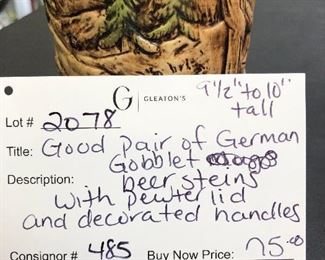 G | GLEATON'S
9 1/2" to 10" tall
Lot # 2078
Title: Good pair of German
Gobblet
Description: beer steins
with pewter lid
and decorated handles
Consignor # 485 Buy Now Price: 75.00